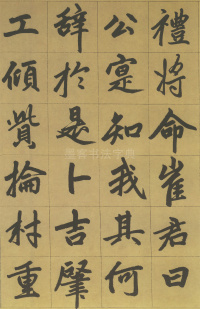 禮將命崔君曰
公寔知我其何
辭於是卜吉肇
工傾貲掄材重